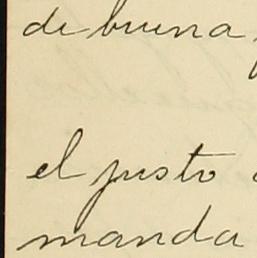 de buena
el justo
manda